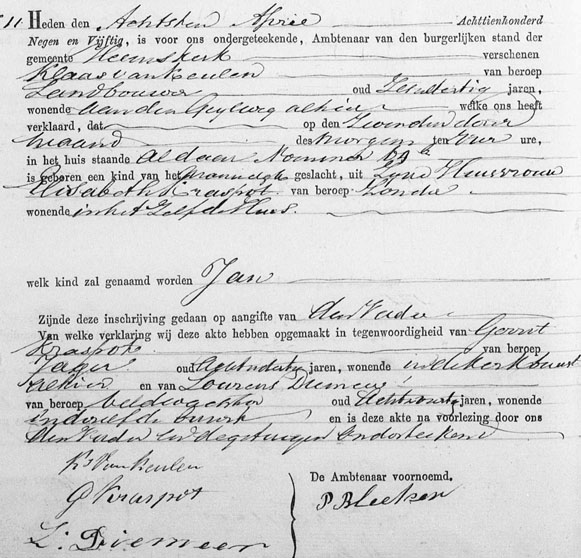 11 Heden den Achtsten April Achttienhonderd
Negen en Vijftig, is voor ons ondergeteekende, Ambtenaar van den burgerlijken stand der
gemeente Heemskerk verschenen
Klaas van Keulen van beroep
Landbouwer oud jaren,
wonende aan den alhier welke ons heeft
verklaard, dat op den dezer
maand des morgens ten Vier ure,
in het huis staande Aldaar Nommer
is geboren een kind van het mannelijk geslacht, uit Zijne Huisvrouw
Elisabeth Kraspot van beroep Zonder
wonende in het Zelfde Huis.
welk kind zal genaamd worden Jan
Zijnde deze inschrijving gedaan op aangifte van den Vader
Van welke verklaring wij deze akte hebben opgemaakt in tegenwoordigheid van Gerrit
Kraspot van beroep
oud jaren, wonende in de Kerkbuurt
alhier en van Lourens Diemeer
van beroep veldwachter oud jaren, wonende
in dezelfde buurt en is deze akte na voorlezing door ons
den Vader en de getuigen onderteekend
Ks van Keulen
G Kraspot
L. Diemeer
De Ambtenaar voornoemd,
P Bleeker